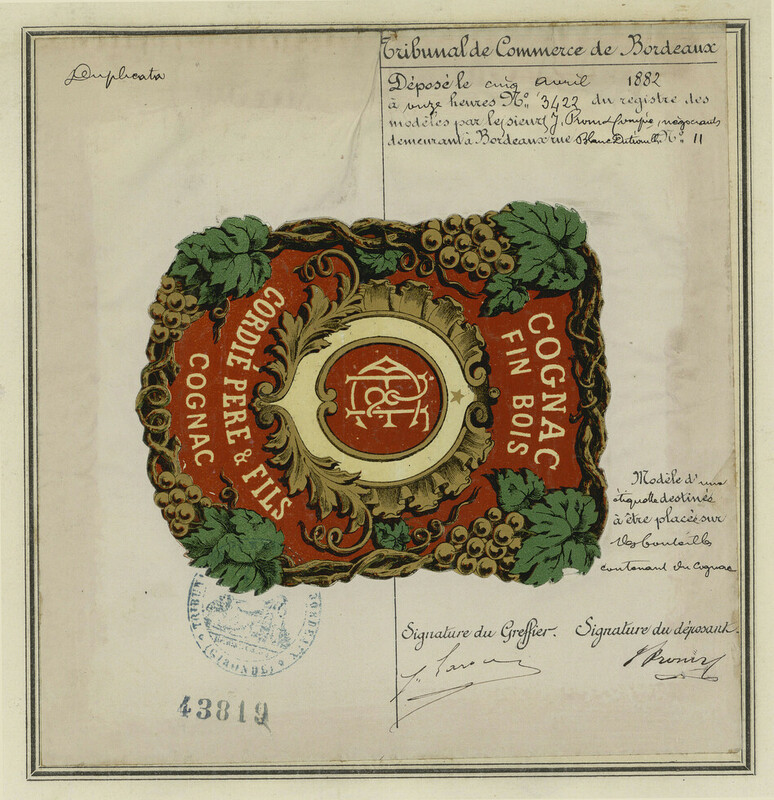 Duplicata
Tribunal de Commerce de Bordeaux
Déposé le cinq avril 1882
à onze heures No. 3422 du registre des
modèles par les sieurs J. négociants
demeurant à Bordeaux rue Blanc Dutrouilh No. 11
COGNAC
FIN BOIS
CP&F
CORDIÉ PERE & FILS
COGNAC
Modèle d'une
étiquette destinée
à être placée sur
des bouteilles
contenant du Cognac
TRIBUNAL
BORDEAUX
(GIRONDE)
Signature du Greffier. Signature du déposant.
43819